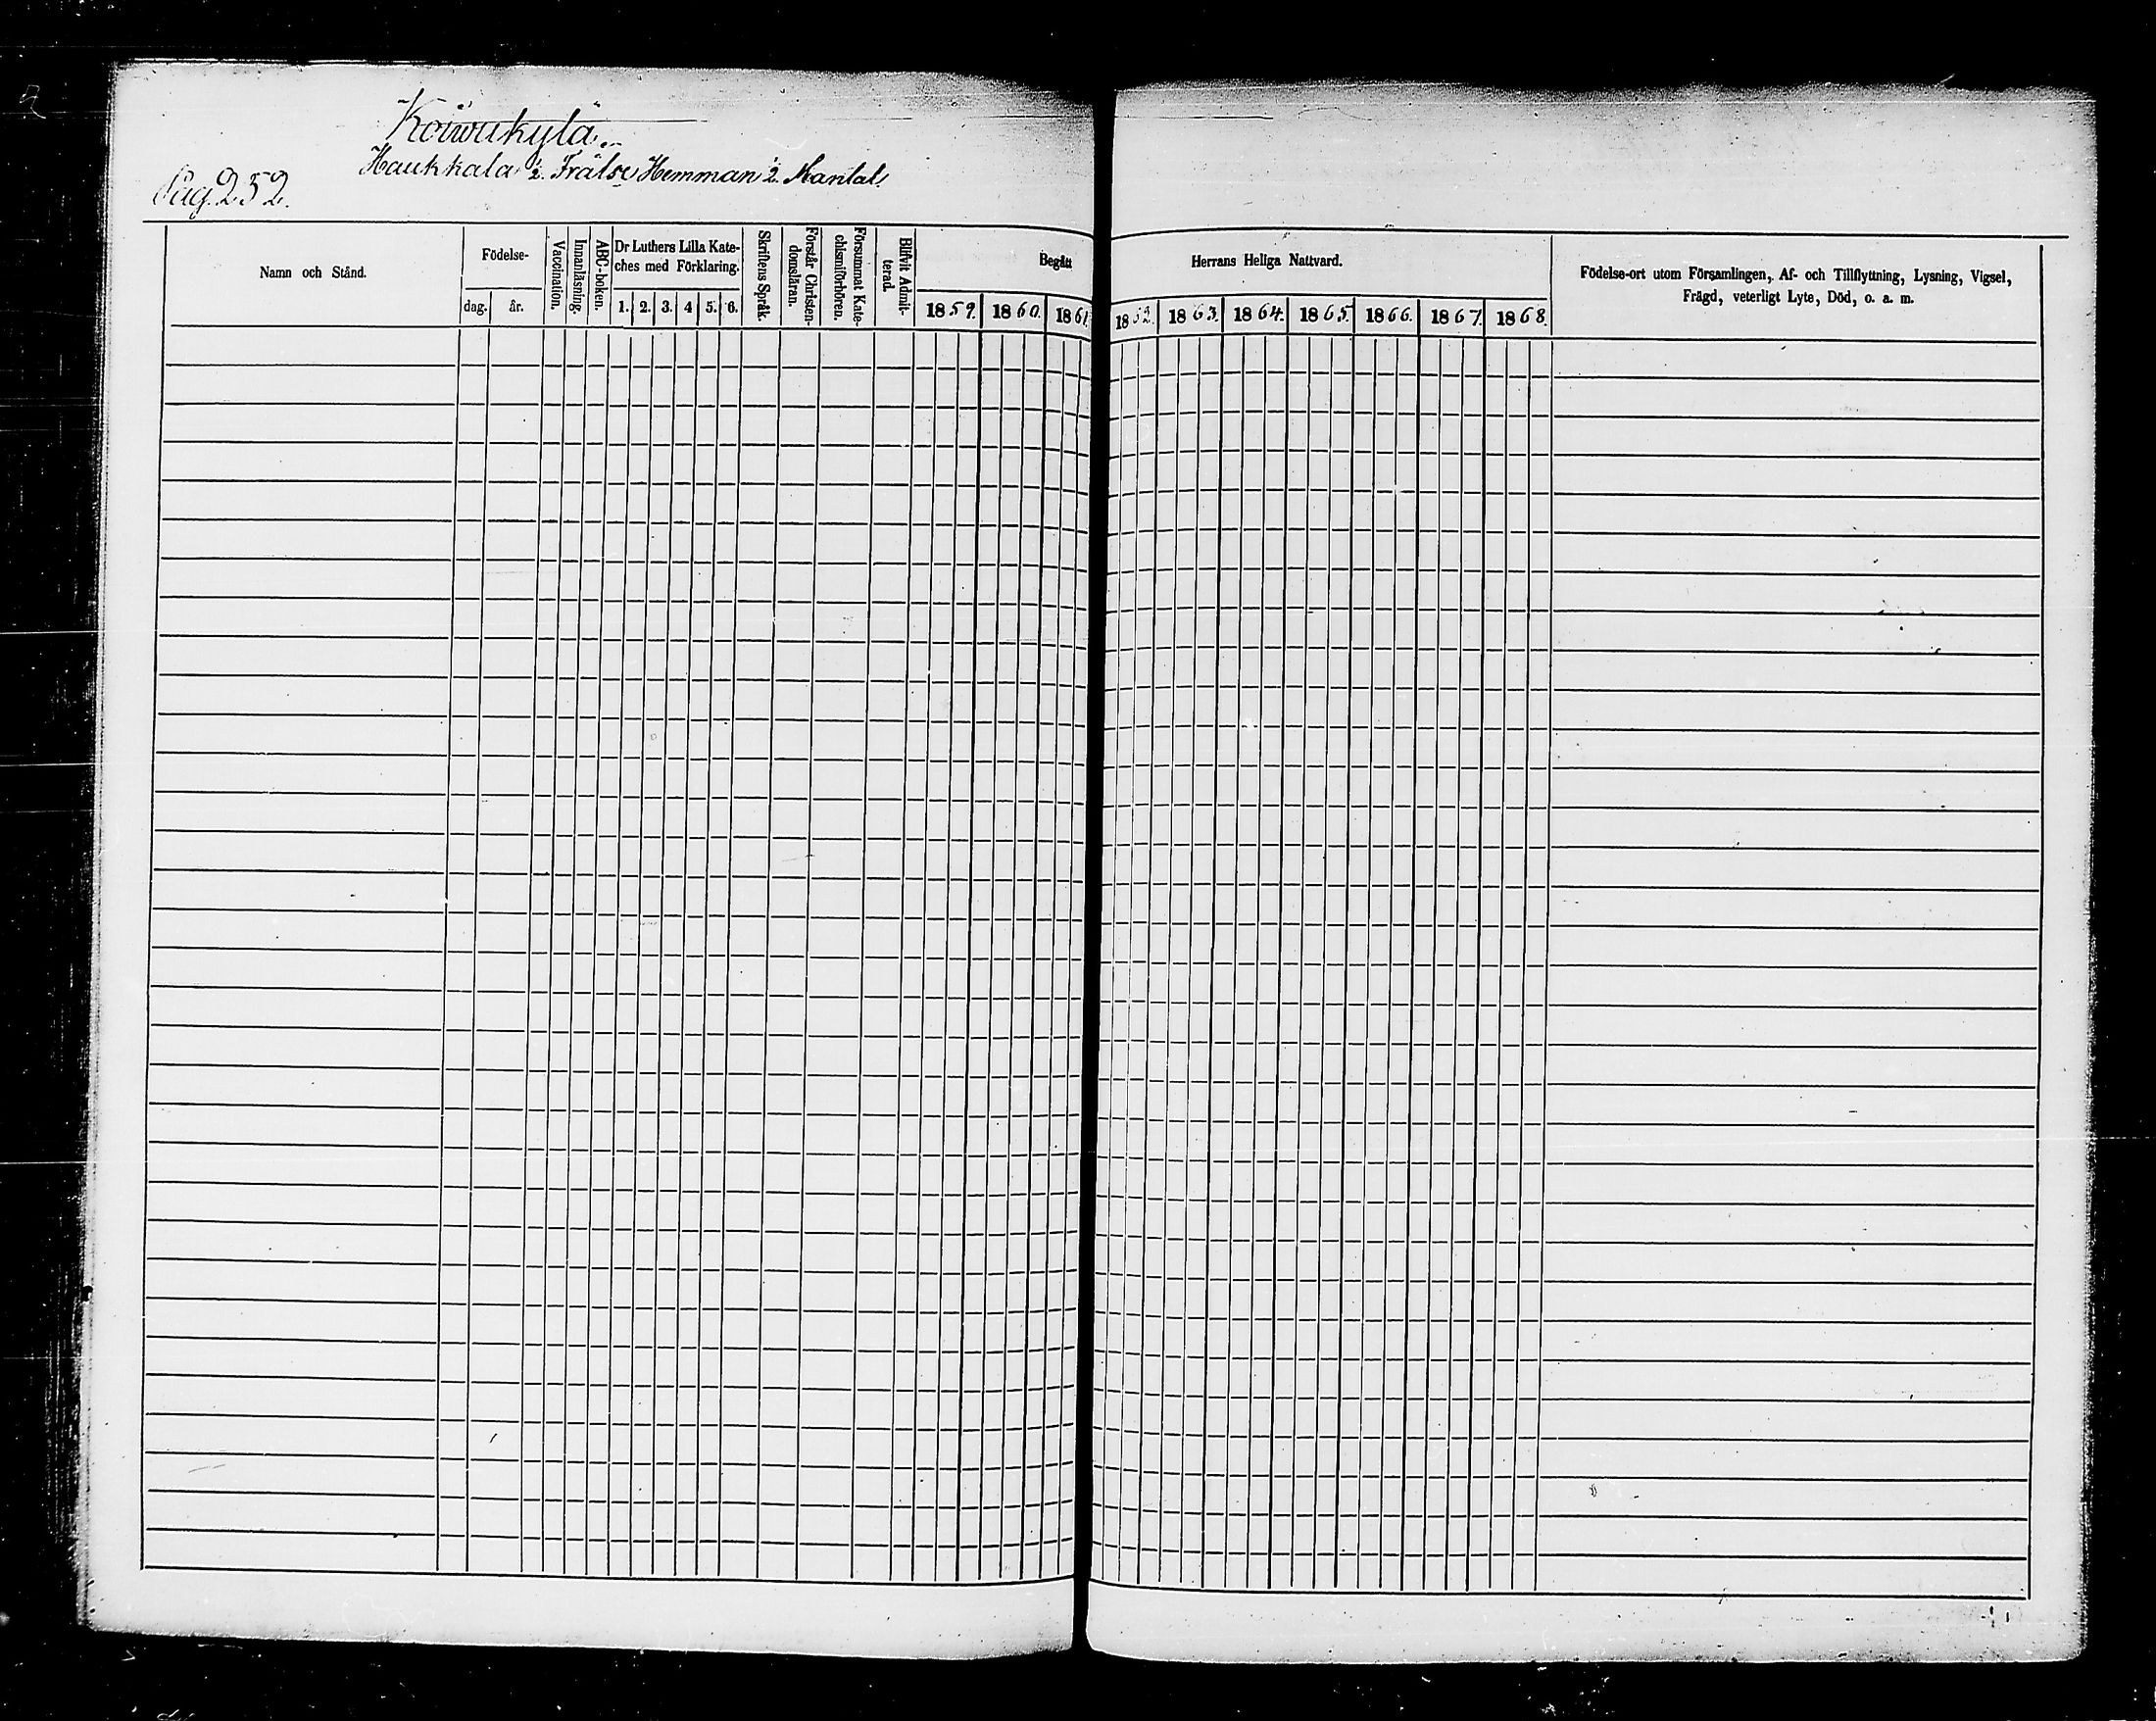 Koiwukylä.
Haukkala ½. Frälse Hemman ½. Mantal.
Pag. 252.
Namn och Stånd.
Födelse-
dag. år.
Vaccination.
Innanläsning.
ABC-boken.
Dr Luthers Lilla Kate-
ches med Förklaring.
1. 2. 3. 4 5. 6.
Skriftens Språk.
Förstår Christen-
domsläran.
Försummat Kate-
chismiförhören.
Blifvit Admit-
terad.
Begått Herrans Heliga Nattvard.
1859. 1860. 1861. 1862. 1863. 1864. 1865. 1866. 1867. 1868.
Födelse-ort utom Församlingen, Af- och Tillflyttning, Lysning, Vigsel,
Frägd, veterligt Lyte, Död, o. a. m.